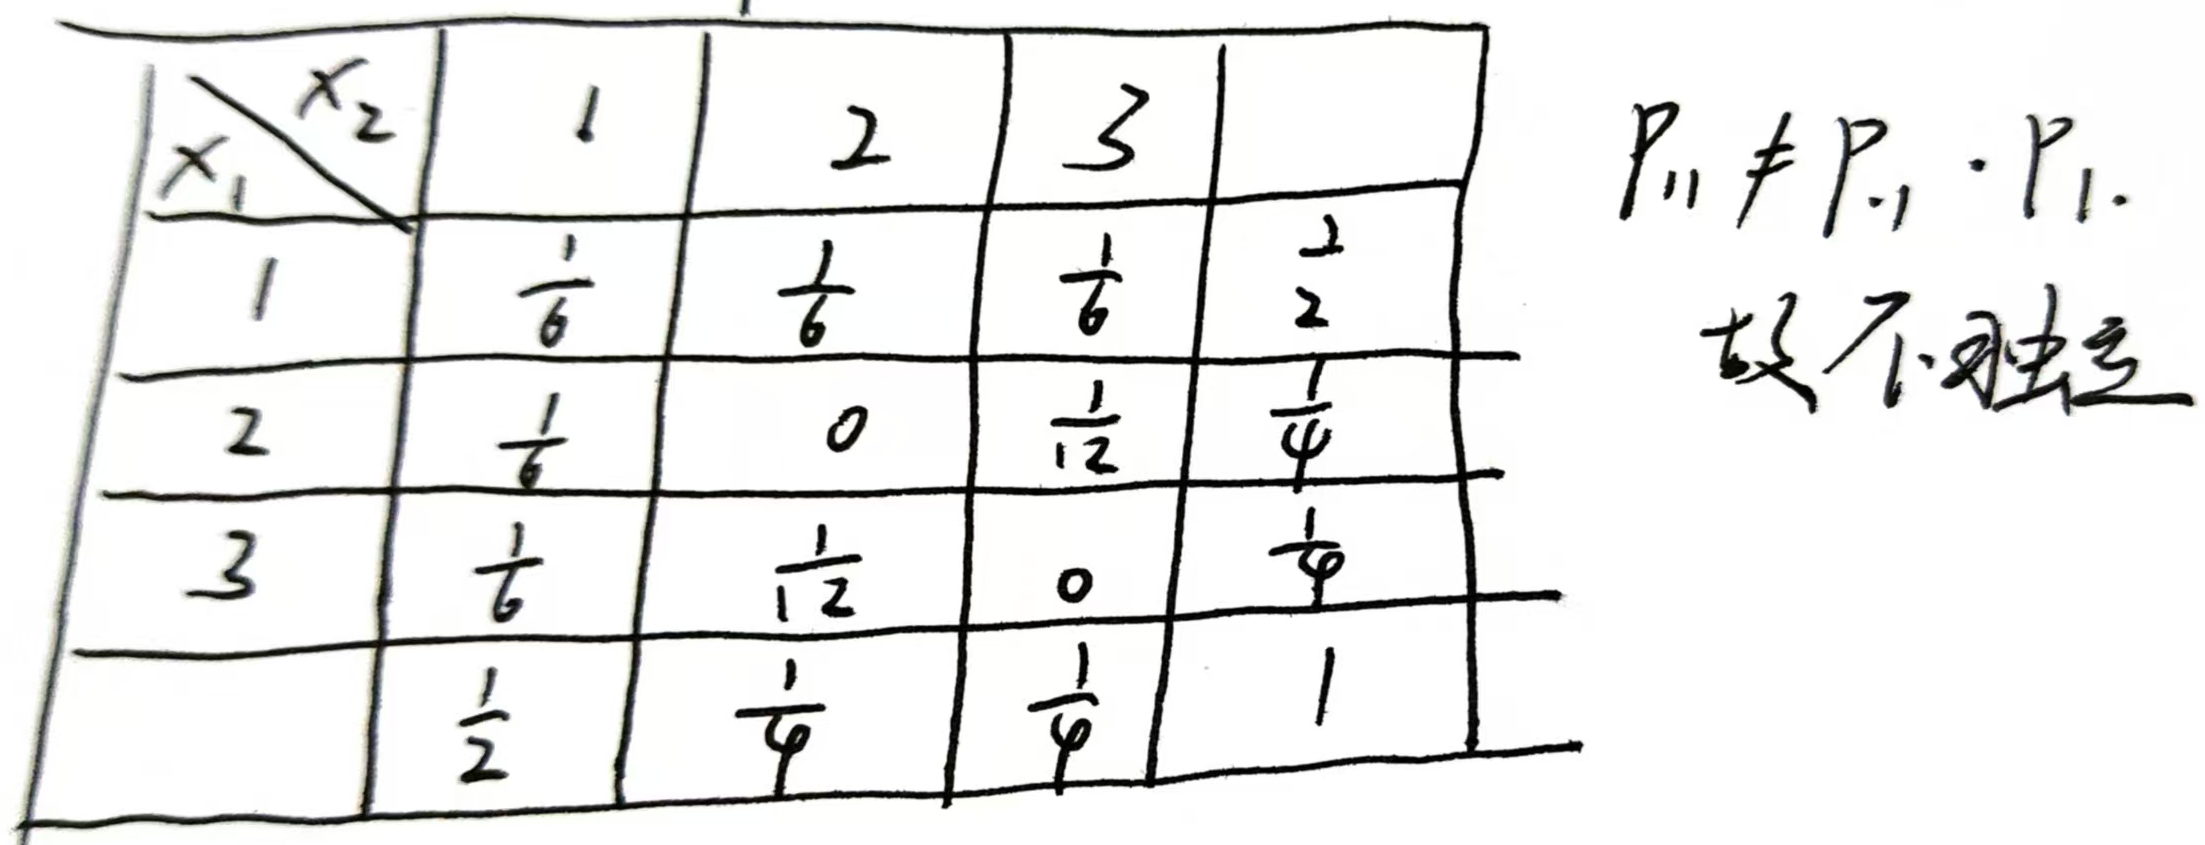 X₁ X₂ 1 2 3
1 1/6 1/6 1/6 1/2
2 1/6 0 1/12 1/4
3 1/6 1/12 0 1/4
1/2 1/4 1/4 1
P₁₁ ≠ P.₁ · P₁.
故不独立